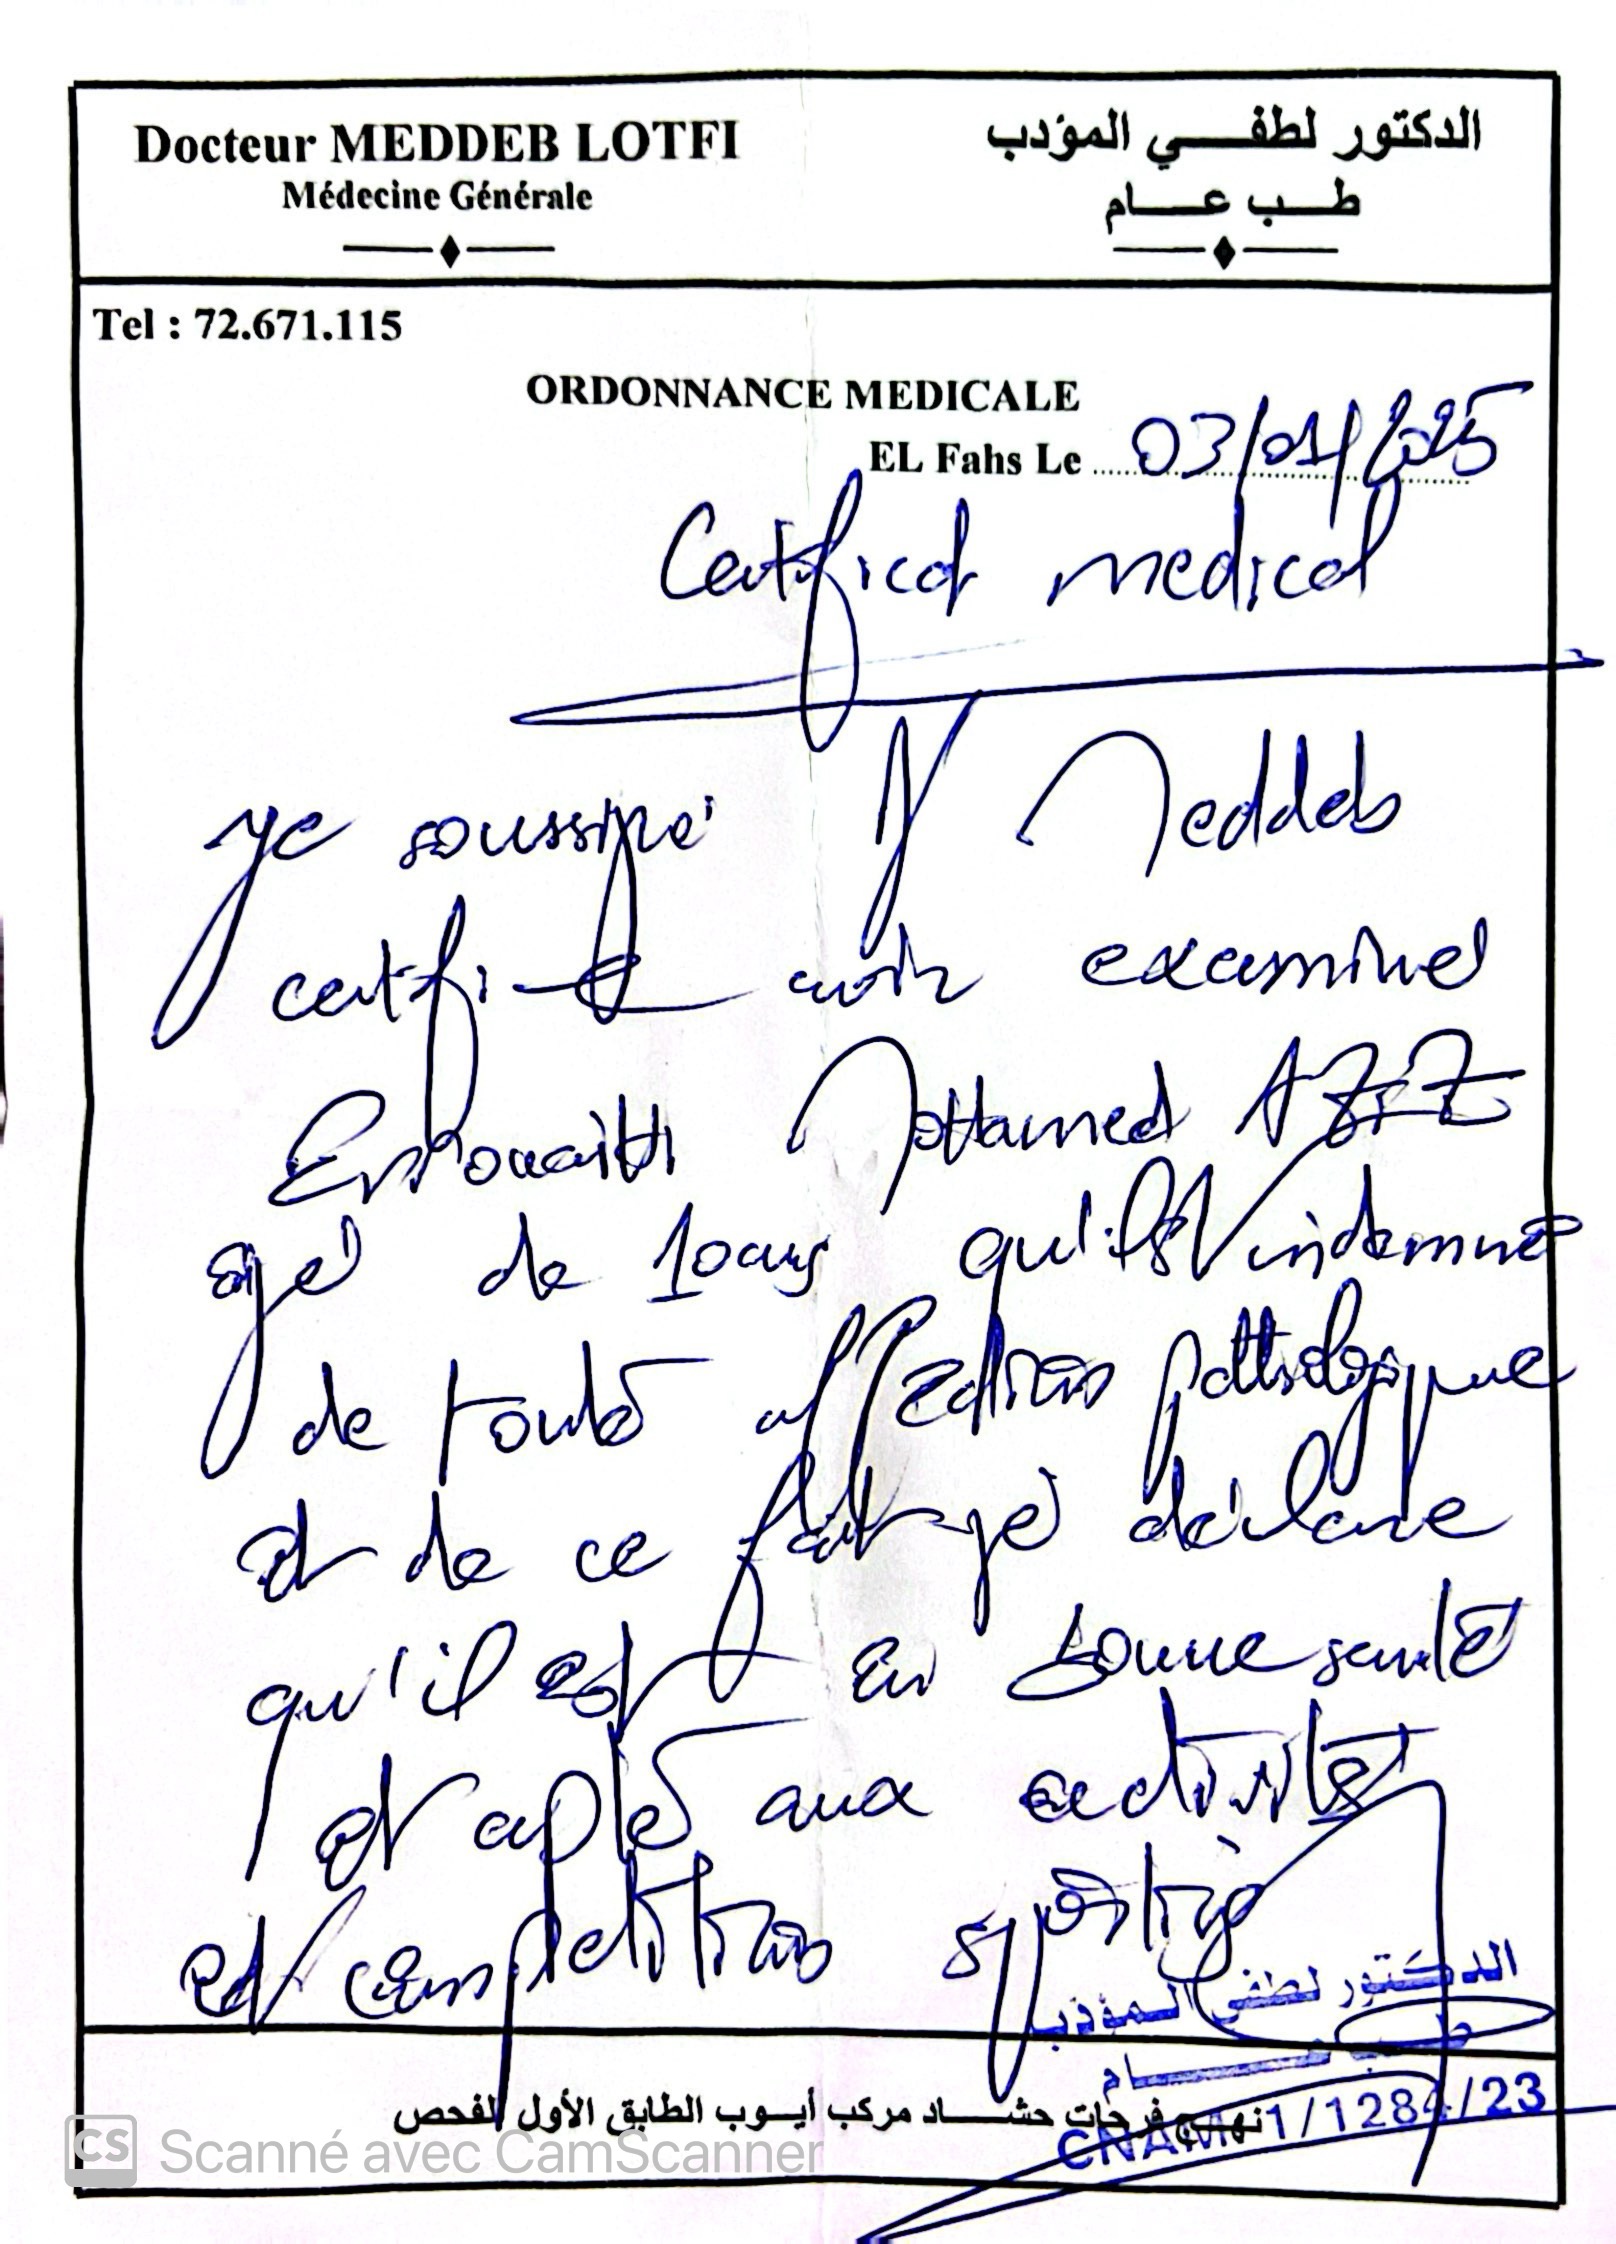 Docteur MEDDEB LOTFI
Médecine Générale
الدكتور لطفي المؤدب
طب عام
Tel : 72.671.115
ORDONNANCE MEDICALE
EL Fahs Le 03/01/2025
Certificat medical
Je soussigné Meddeb
certifie avoir examiner
Mohamed AZIZ
agé de 10 ans qu'il est indemne
de toute affection pathologique
et de ce fait je déclare
qu'il est en bonne santé
et apte aux activités
et compétitions sportive
الدكتور لطفي المؤدب
طب عام
CNAM 1/1284/23
نهج فرحات حشاد مركب أيوب الطابق الأول الفحص
CS Scanné avec CamScanner